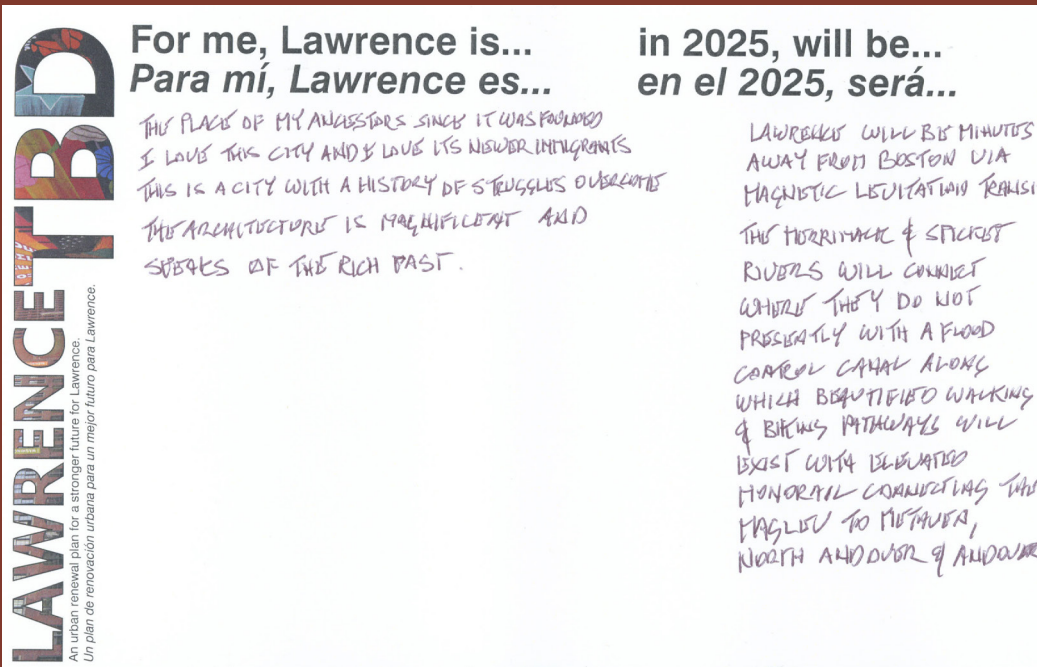 LAWRENCE TBD
An urban renewal plan for a stronger future for Lawrence.
Un plan de renovación urbana para un mejor futuro para Lawrence.
For me, Lawrence is...
Para mí, Lawrence es...
THE PLACE OF MY ANCESTORS SINCE IT WAS FOUNDED
I LOVE THIS CITY AND I LOVE ITS NEWER IMMIGRANTS
THIS IS A CITY WITH A HISTORY OF STRUGGLES OVERCOME
THE ARCHITECTURE IS MAGNIFICENT AND
SPEAKS OF THE RICH PAST.
in 2025, will be...
en el 2025, será...
LAWRENCE WILL BE MINUTES
AWAY FROM BOSTON VIA
MAGNETIC LEVITATION TRANSI
THE MERRIMACK & SPICKET
RIVERS WILL CONNECT
WHERE THEY DO NOT
PRESENTLY WITH A FLOOD
CONTROL CANAL ALONG
WHICH BEAUTIFIED WALKING
& BIKING PATHWAYS WILL
EXIST WITH ELEVATED
MONORAIL CONNECTING THE
MAGLEV TO METHUEN,
NORTH ANDOVER & ANDOVER